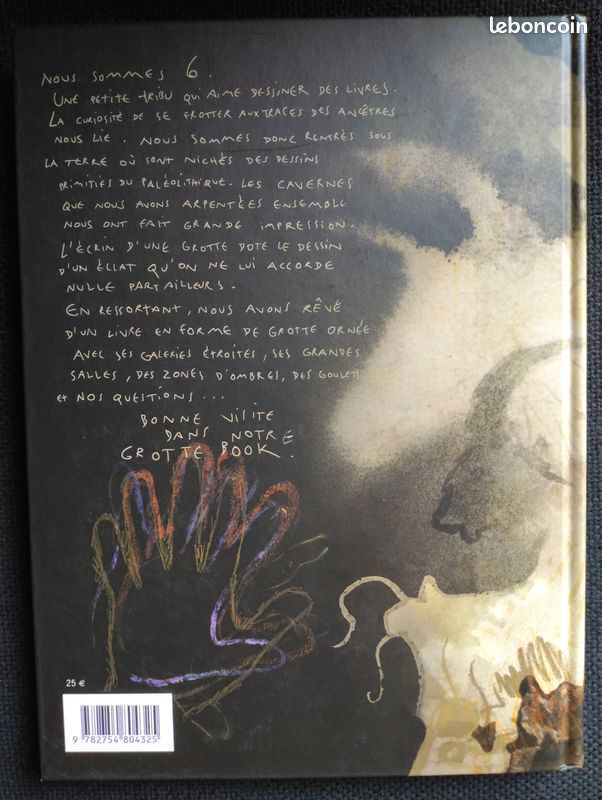 leboncoin
NOUS SOMMES 6.
UNE PETITE TRIBU QUI AIME DESSINER DES LIVRES.
LA CURIOSITÉ DE SE FROTTER AUX TRACES DES ANCÊTRES
NOUS LIE. NOUS SOMMES DONC RENTRÉS SOUS
LA TERRE OÙ SONT NICHÉS DES DESSINS
PRIMITIFS DU PALÉOLITHIQUE. LES CAVERNES
QUE NOUS AVONS ARPENTÉES ENSEMBLE
NOUS ONT FAIT GRANDE IMPRESSION.
L'ÉCRIN D'UNE GROTTE DOTE LE DESSIN
D'UN ÉCLAT QU'ON NE LUI ACCORDE
NULLE PART AILLEURS.
EN RESSORTANT, NOUS AVONS RÊVÉ
D'UN LIVRE EN FORME DE GROTTE ORNÉE
AVEC SES GALERIES ÉTROITES, SES GRANDES
SALLES, DES ZONES D'OMBRES, DES GOULETS
ET NOS QUESTIONS...
BONNE VISITE
DANS NOTRE
GROTTE BOOK.
25 €
9 782754 804325